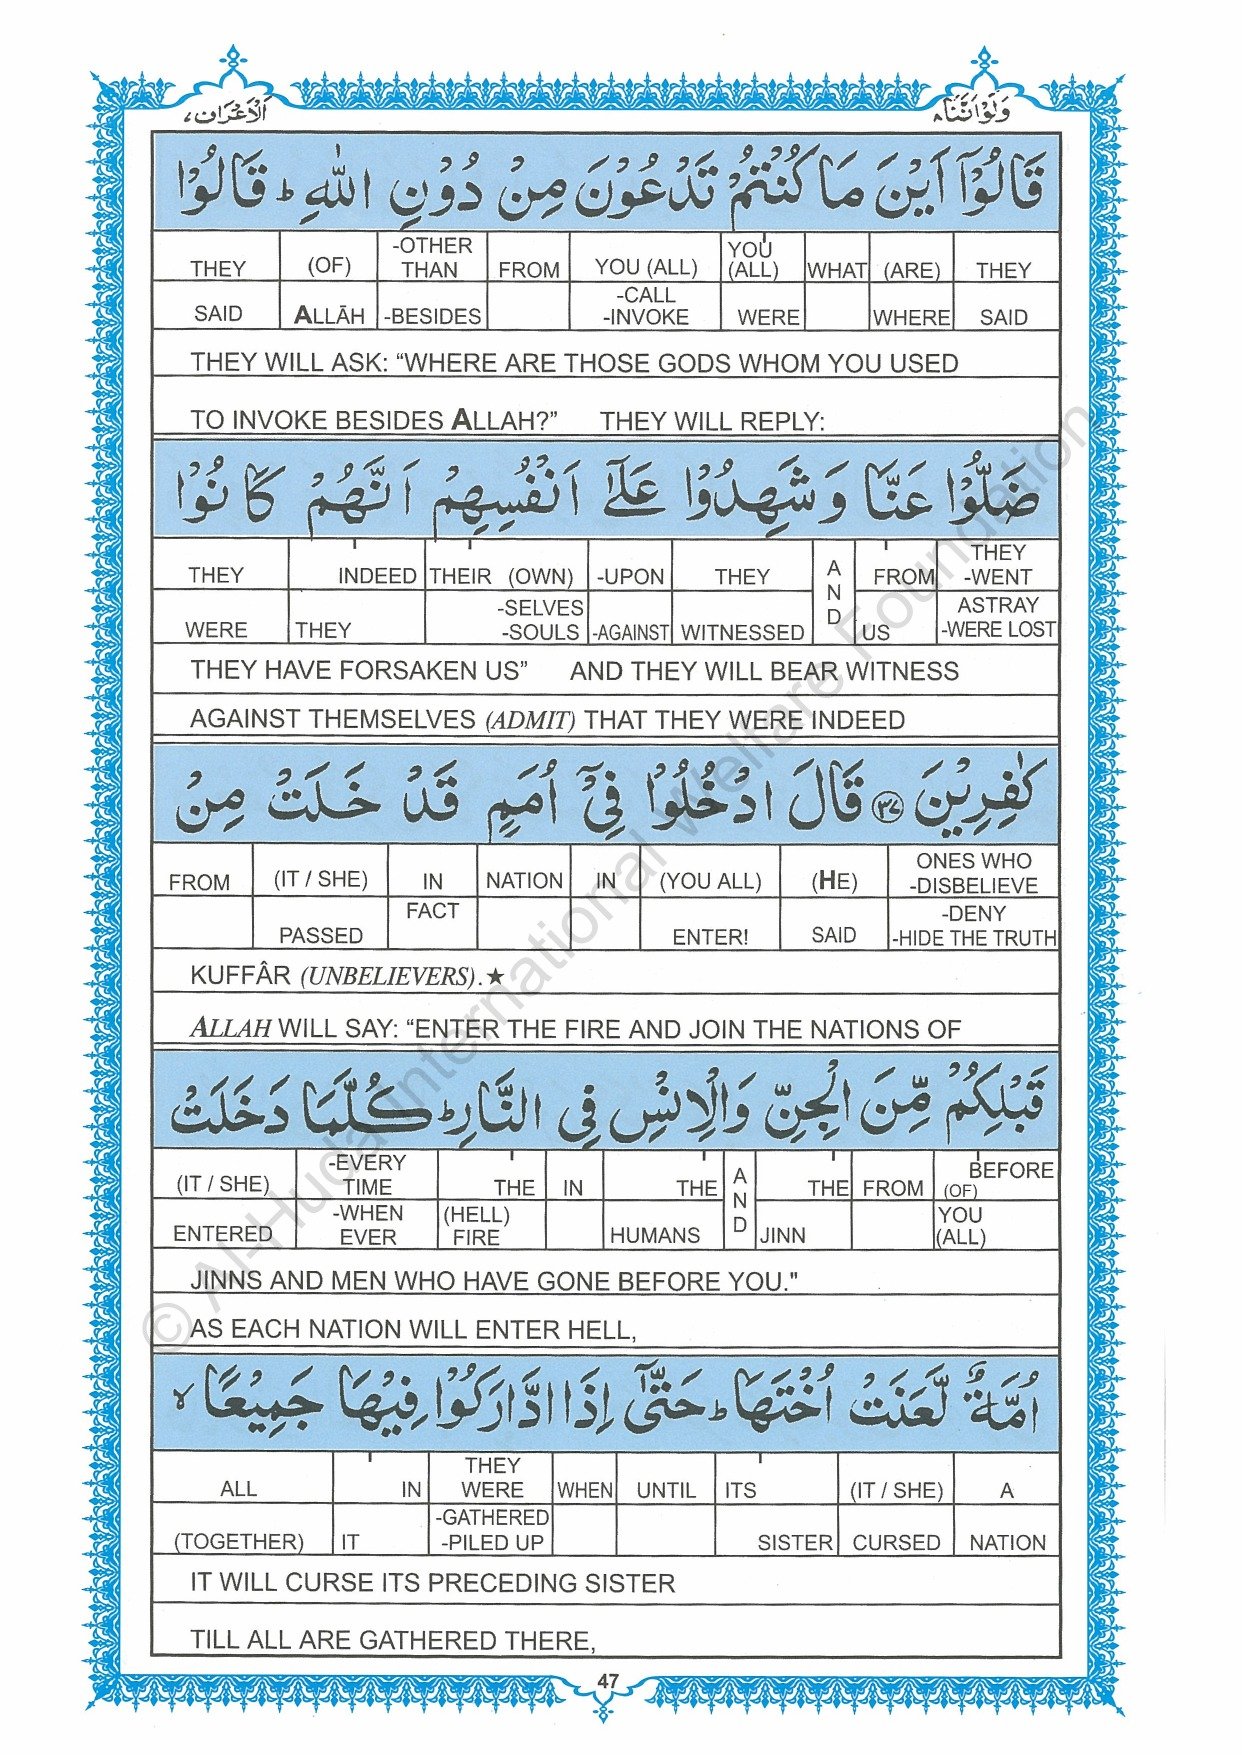 وَلَوْ اَنَّنَا ٨
اَلْاَعْرَاف ٧
قَالُوْۤا اَيْنَ مَا كُنْتُمْ تَدْعُوْنَ مِنْ دُوْنِ اللّٰهِ ؕ قَالُوْا
THEY (ARE) WHAT YOU (ALL) YOU (ALL) FROM -OTHER THAN (OF) THEY
SAID WHERE WERE -CALL -INVOKE -BESIDES ALLĀH SAID
THEY WILL ASK: “WHERE ARE THOSE GODS WHOM YOU USED
TO INVOKE BESIDES ALLAH?” THEY WILL REPLY:
ضَلُّوْا عَنَّا وَ شَهِدُوْا عَلٰۤى اَنْفُسِهِمْ اَنَّهُمْ كَانُوْا
THEY -WENT FROM AND THEY -UPON THEIR (OWN) INDEED THEY
ASTRAY -WERE LOST US WITNESSED -AGAINST -SELVES -SOULS THEY WERE
THEY HAVE FORSAKEN US” AND THEY WILL BEAR WITNESS
AGAINST THEMSELVES (ADMIT) THAT THEY WERE INDEED
كٰفِرِيْنَ ﴿٣٧﴾ قَالَ ادْخُلُوْا فِيْۤ اُمَمٍ قَدْ خَلَتْ مِنْ
ONES WHO -DISBELIEVE (HE) (YOU ALL) IN NATION IN (IT / SHE) FROM
-DENY -HIDE THE TRUTH SAID ENTER! FACT PASSED
KUFFÂR (UNBELIEVERS).★
ALLAH WILL SAY: “ENTER THE FIRE AND JOIN THE NATIONS OF
قَبْلِكُمْ مِّنَ الْجِنِّ وَالْاِنْسِ فِى النَّارِ ؕ كُلَّمَا دَخَلَتْ
BEFORE (OF) FROM THE AND THE IN THE -EVERY TIME (IT / SHE)
YOU (ALL) JINN HUMANS (HELL) FIRE -WHEN EVER ENTERED
JINNS AND MEN WHO HAVE GONE BEFORE YOU."
AS EACH NATION WILL ENTER HELL,
اُمَّةٌ لَّعَنَتْ اُخْتَهَا ؕ حَتّٰۤى اِذَا ادَّارَكُوْا فِيْهَا جَمِيْعًا ۙ
A (IT / SHE) ITS UNTIL WHEN THEY WERE IN ALL
NATION CURSED SISTER -GATHERED -PILED UP IT (TOGETHER)
IT WILL CURSE ITS PRECEDING SISTER
TILL ALL ARE GATHERED THERE,
47
© Al-Huda International Welfare Foundation